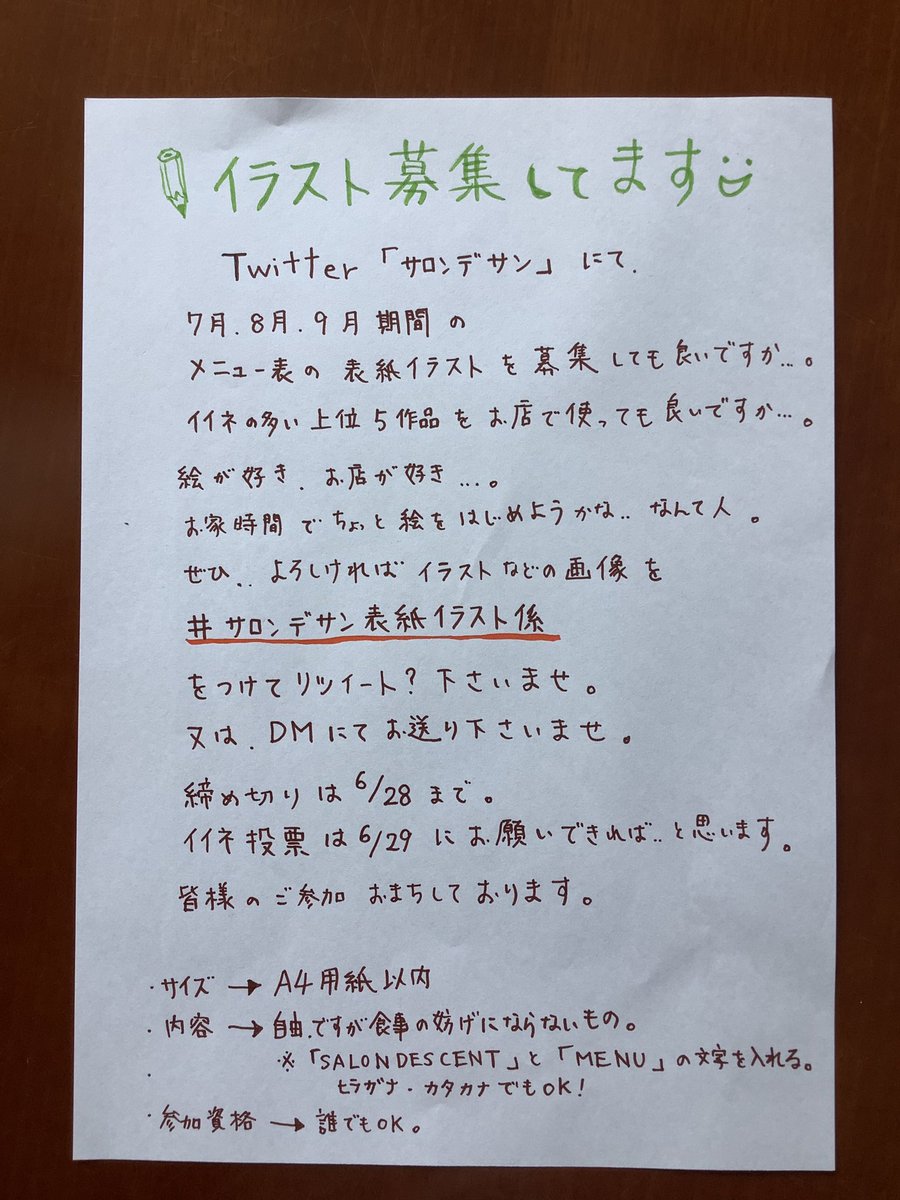 イラスト募集してます
Twitter「サロンデサン」にて.
7月.8月.9月期間の
メニュー表の表紙イラストを募集しても良いですか…。
イイネの多い上位5作品をお店で使っても良いですか…。
絵が好き.お店が好き…。
お家時間でちょっと絵をはじめようかな..なんて人。
ぜひ..よろしければイラストなどの画像を
#サロンデサン表紙イラスト係
をつけてリツイート?下さいませ。
又は.DMにてお送り下さいませ。
締め切りは6/28まで。
イイネ投票は6/29にお願いできれば..と思います。
皆様のご参加おまちしております。
・サイズ→A4用紙以内
・内容→自由.ですが食事の妨げにならないもの。
※「SALONDESCENT」と「MENU」の文字を入れる。
・ヒラガナ・カタカナでもOK!
・参加資格→誰でもOK。